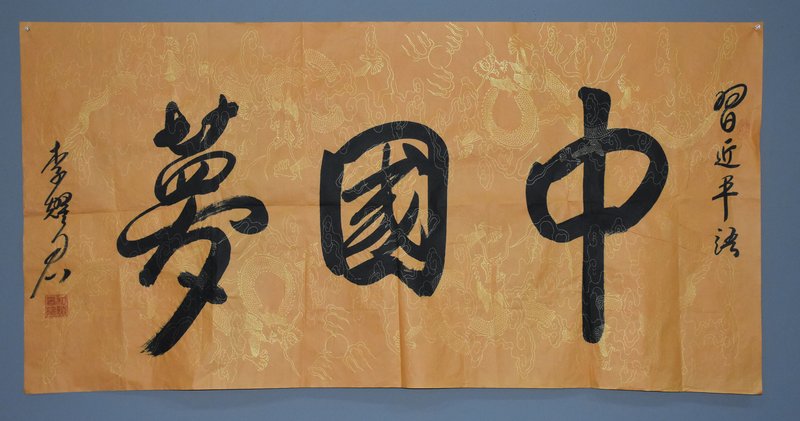 習近平語
中國夢
李耀君